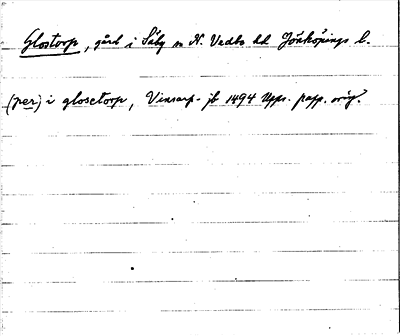 Glostorp, gård i Säby sn N. Vedbo hd Jönköpings l.
(per) i glosetorp, Vinsarp- jb 1494 Upps. papp. orig.